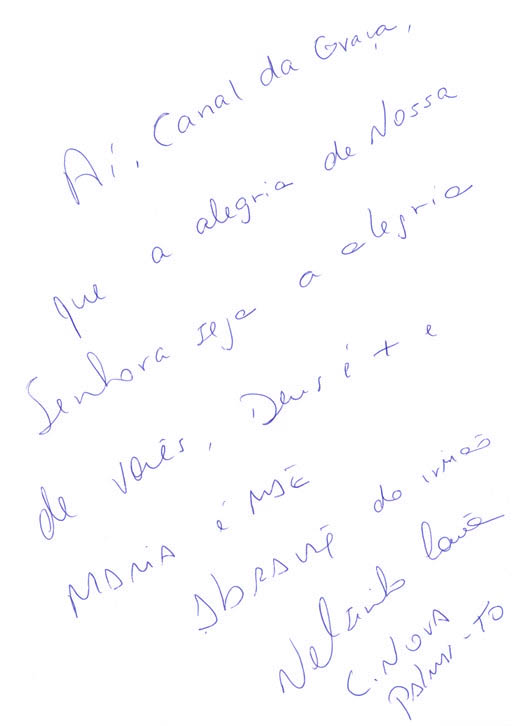 Aí, Canal da Graça,
que a alegria de Nossa
Senhora seja a alegria
de vocês, Deus é + e
MARIA é MÃE
Abraço do irmão
Nelsinho
C. NOVA
PALMAS-TO